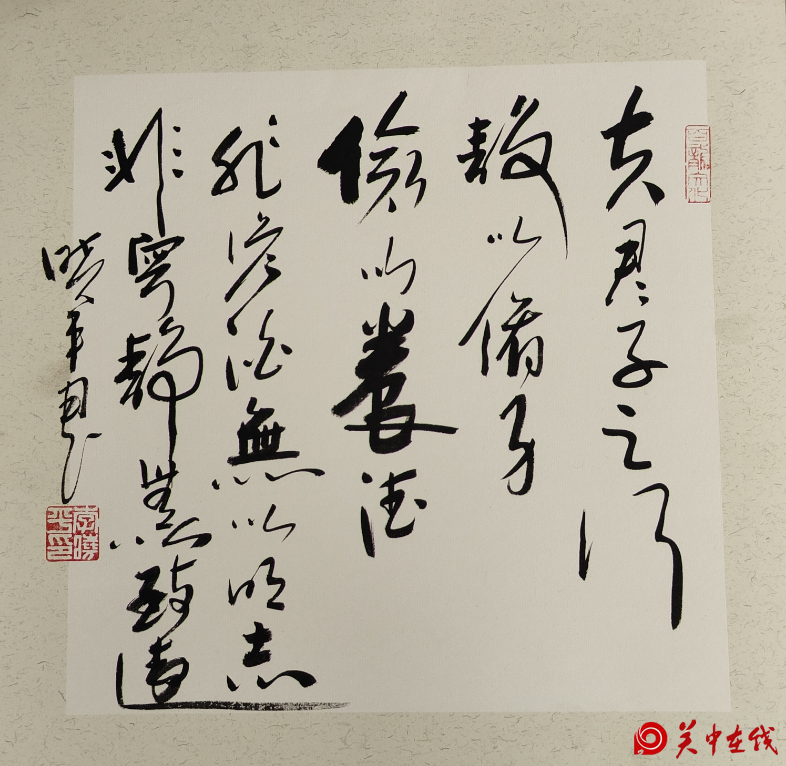 夫君子之行
靜以脩身
儉以養德
非澹泊無以明志
非寧靜無以致遠
曉平
李曉平印
关中在线